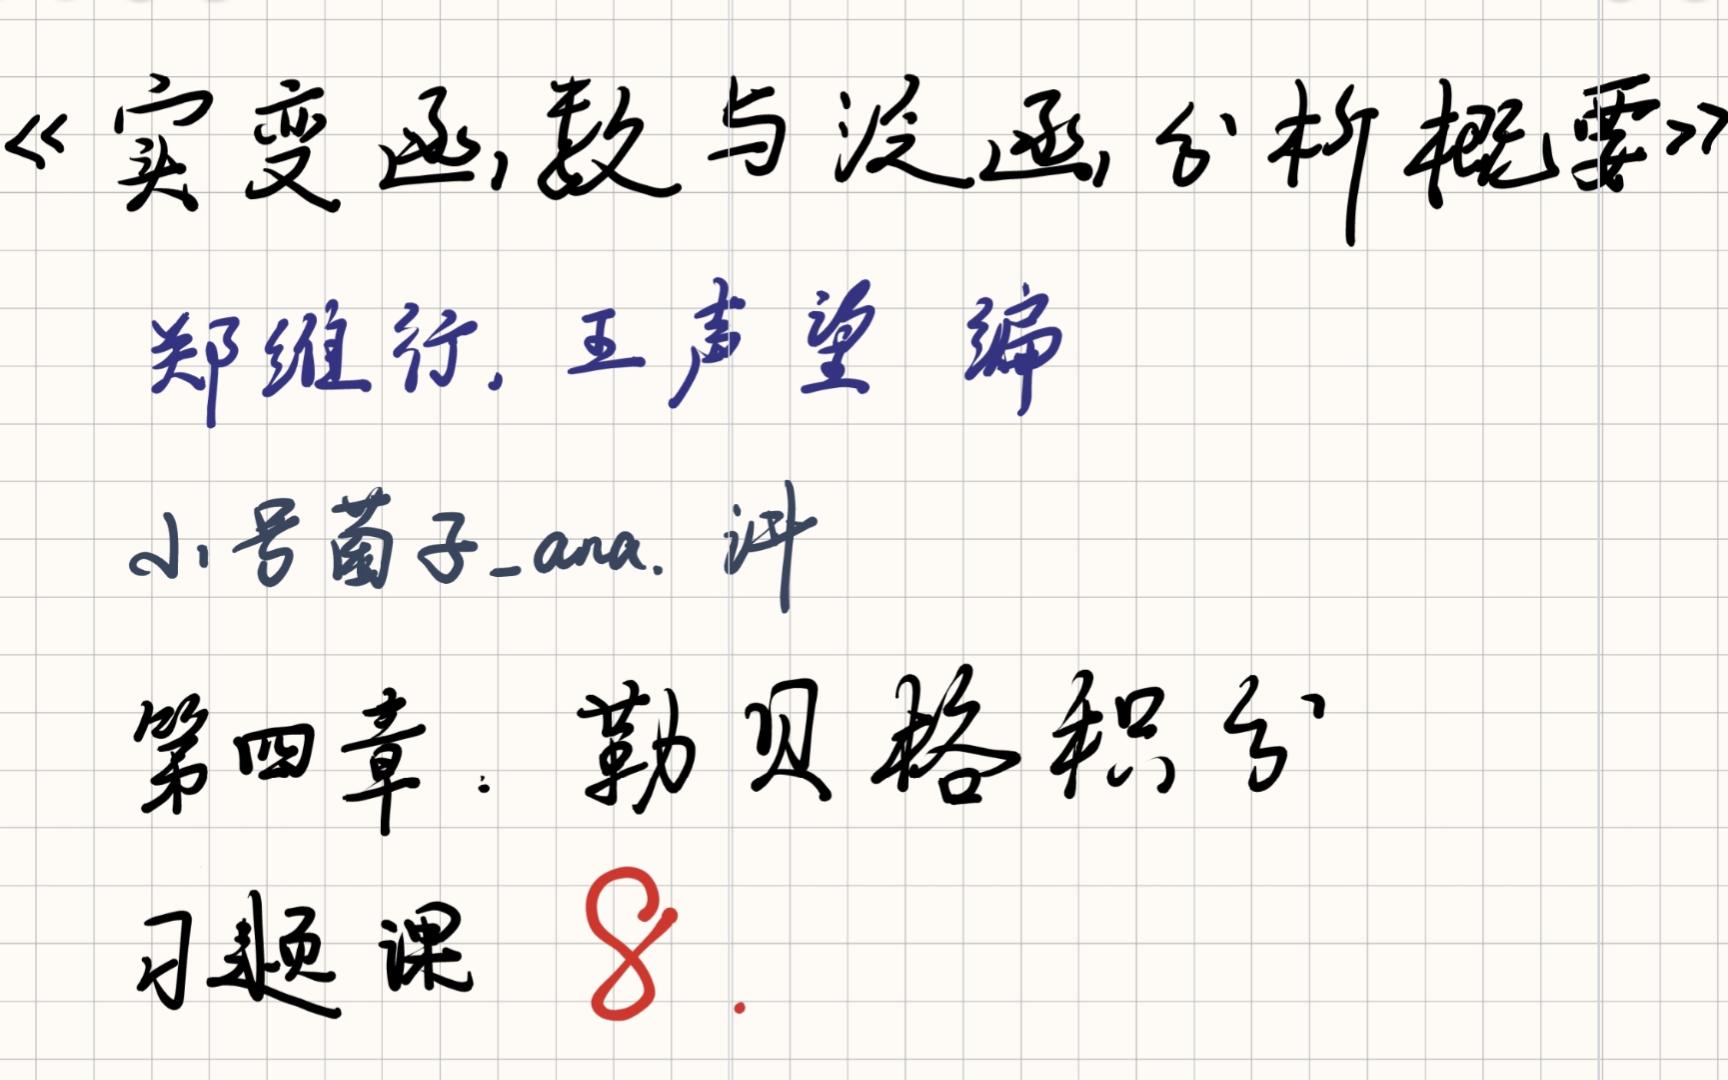 《实变函数与泛函分析概要》
郑维行.王声望 编
小号菌子_ana. 讲
第四章:勒贝格积分
习题课 8.